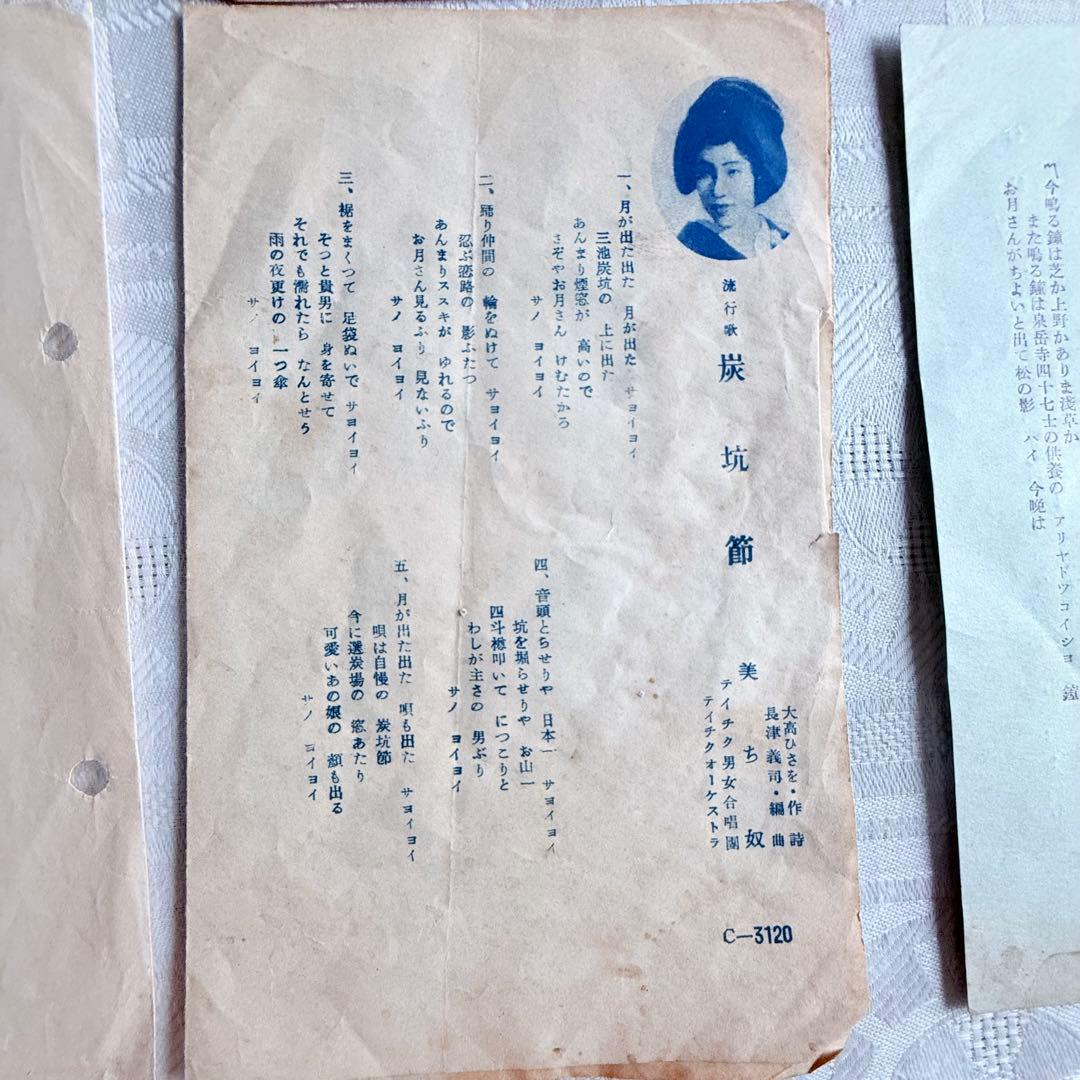 流行歌 炭坑節
大高ひさを・作詩
長津義司・編曲
美ち奴
テイチク男女合唱團
テイチクオーケストラ
一、月が出た出た 月が出た サヨイヨイ
三池炭坑の 上に出た
あんまり煙窓が 高いので
さぞやお月さん けむたかろ
サノ ヨイヨイ
二、踊り仲間の 輪をぬけて サヨイヨイ
忍ぶ恋路の 影ふたつ
あんまりススキが ゆれるので
お月さん見るふり 見ないふり
サノ ヨイヨイ
三、裾をまくつて 足袋ぬいで サヨイヨイ
そつと貴男に 身を寄せて
それでも濡れたら なんとせう
雨の夜更けの 一つ傘
サノ ヨイヨイ
四、音頭とらせりや 日本一 サヨイヨイ
坑を堀らせりや お山一
四斗樽叩いて につこりと
わしが主さの 男ぶり
サノ ヨイヨイ
五、月が出た出た 唄も出た サヨイヨイ
唄は自慢の 炭坑節
今に選炭場の 窓あたり
可愛いあの娘の 顔も出る
サノ ヨイヨイ
C—3120
今鳴る鐘は芝か上野かありま浅草か
また鳴る鐘は泉岳寺四十七士の供養の アリヤドツコイシヨ 鐘
お月さんがちよいと出て松の影 ハイ 今晩は